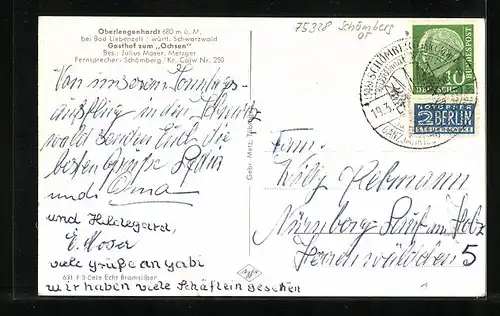 Oberlengenhardt 680 m ü. M.
bei Bad Liebenzell · württ. Schwarzwald
Gasthof zum „Ochsen"
Bes.: Julius Moser, Metzger
Fernsprecher: Schömberg / Kr. Calw Nr. 250
75328 Schömberg
OF
Von unserem Sonntags-
ausflug in den Schwarz
wald senden Euch die
besten Grüße
und Oma
und Hildegard,
E. Moser
viele grüße an gabi
wir haben viele Schäflein gesehen
631 F 3 Cete Echt Bromsilber
Gebr. Metz, Tübingen
19.3.
10
DEUTSCHE
BUNDESPOST
NOTOPFER
2 BERLIN
STEUERMARKE
Fam.
Willy
Nürnberg
5